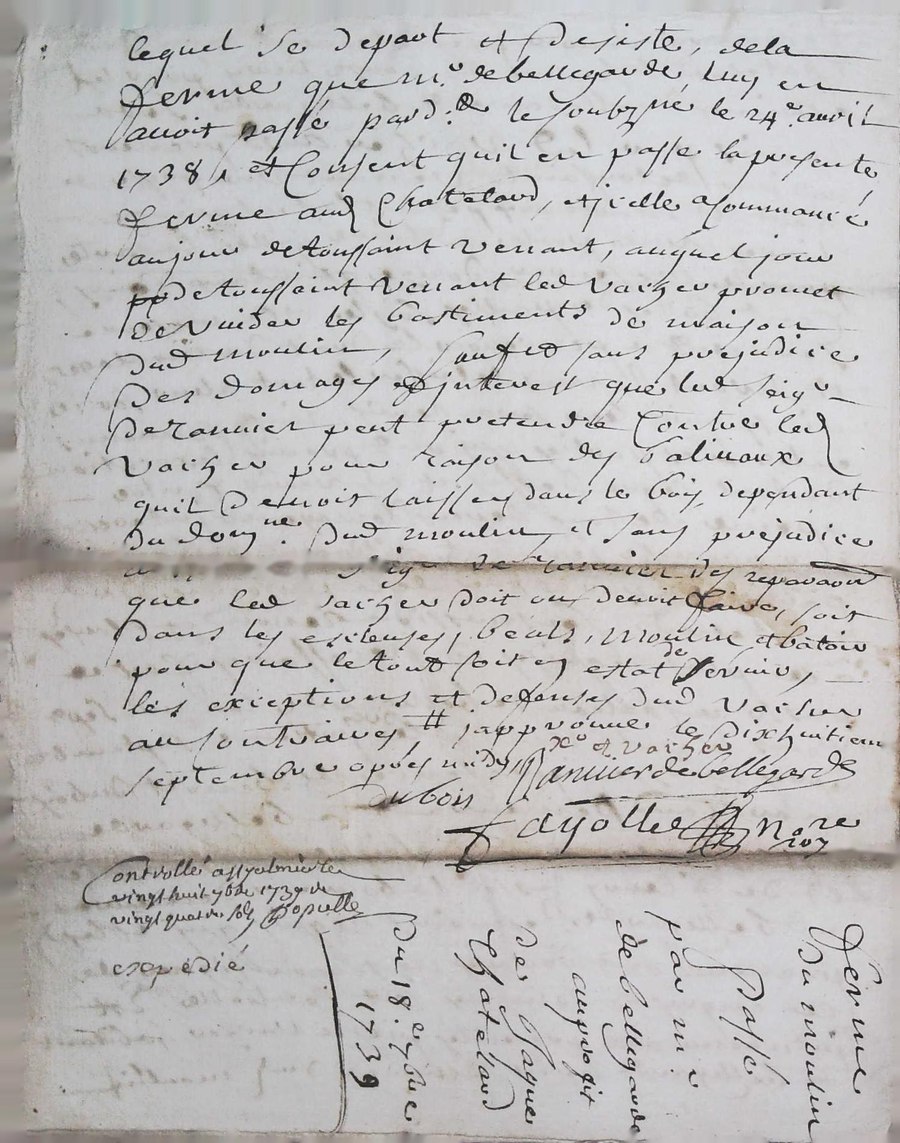 lequel se depart et desiste, dela
ferme que mr. debellegarde luy en
avoit passé pard: le soubzné le 24e. avril
1738, et Consent quil en passe la presente
ferme aud Chatelard, et icelle a Commancé
aujour detoussaint venant, auquel jour
detoussaint venant led vacher promet
de vuider les bastiments de maison
dud moulin, sauf et sans prejudice
des domages et interest que led seigr
de Rannier peut pretendre Contre led
vacher pour raison des baliveaux
quil devoit laisser dans le bois dependant
du domne. dud moulin, et sans prejudice
des reparaons
que led vacher doit ou devoit faire, soit
dans les escluses, beals, moulin et batoir
pour que le tout soit en estat de servir,
les exceptions et defenses dud vacher
au Contraires # japprouve le dixhuitiem
septembre apres midy
et vacher
Rannier de bellegarde
dubois
fayolle Nore
Controllé
vingt huit 7bre 1739 Rx
vingt quatre sols
expedié
ferme
du moulin
Passé
par mr
debellegarde
auproffit
de Jaque
Chatelard
Du 18.e 7bre
1739